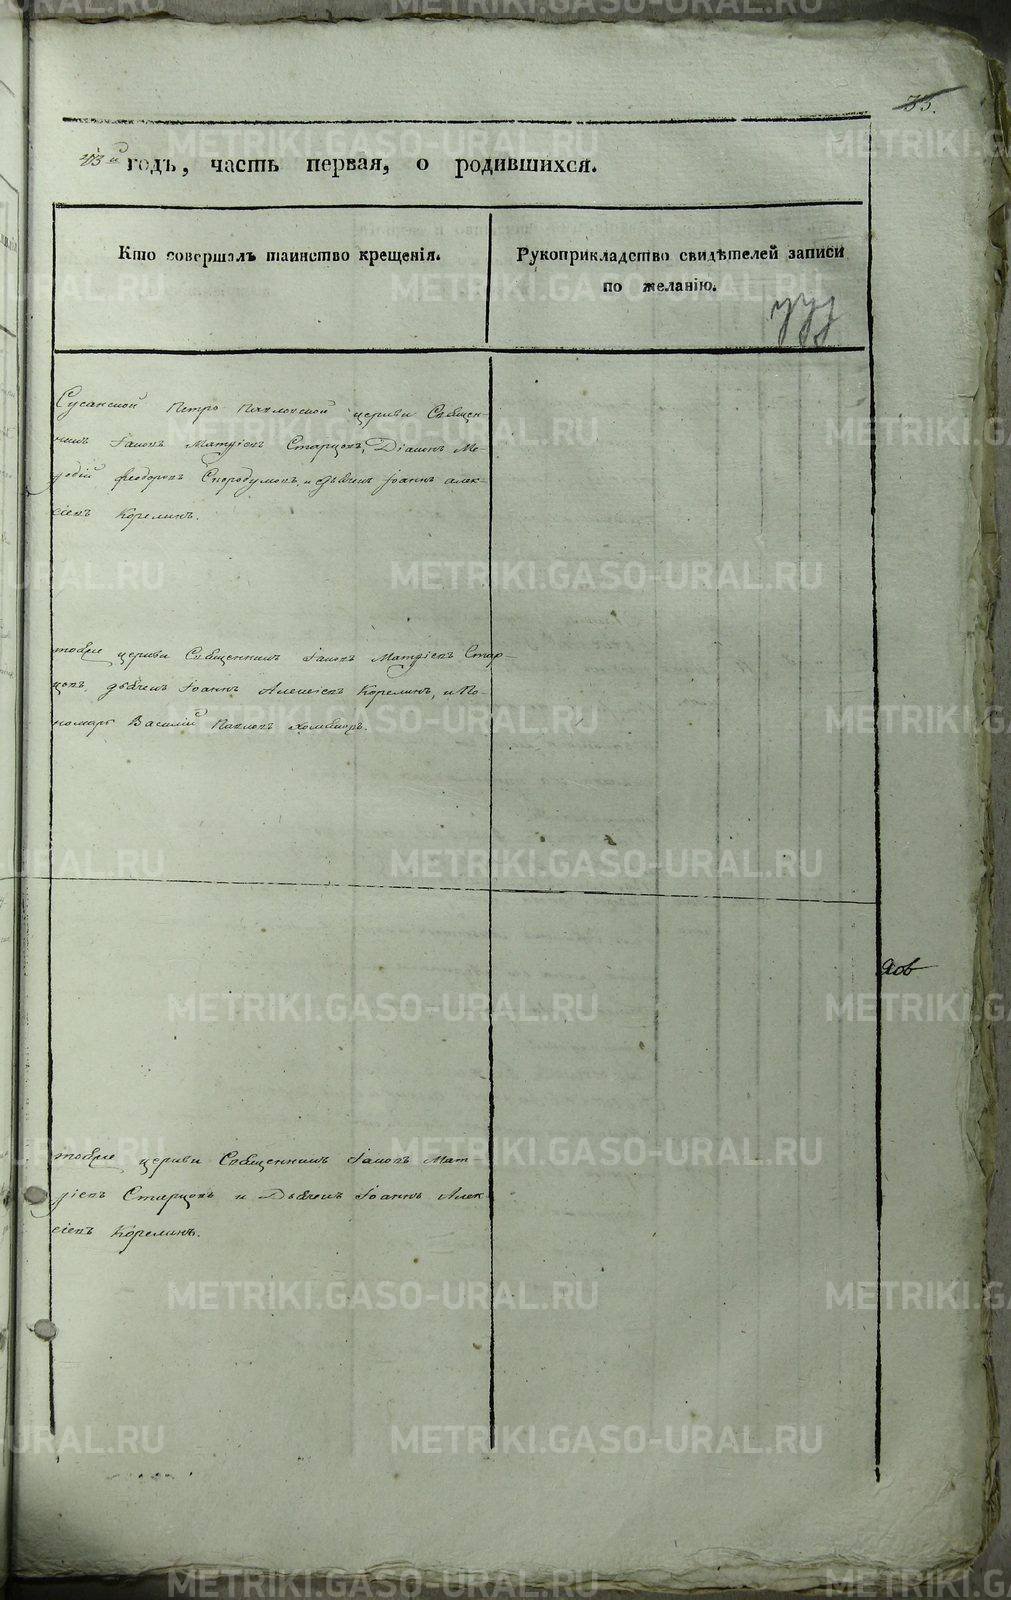 35.
43й годъ, часть первая, о родившихся.
Кто совершалъ таинство крещенія.
Рукоприкладство свидѣтелей записи
по желанію.
Сусанской Петро Павловской церкви Священ-
никъ Іаковъ Матѳіевъ Старцовъ, Діаконъ Ме-
ѳодій Феодоровъ Скородумовъ, и дьячекъ Іоаннъ Алек-
сіевъ Корелинъ.
тойже церкви Священникъ Іаковъ Матѳіевъ Стар-
цовъ, дьячекъ Іоаннъ Алексіевъ Корелинъ, и По-
номарь Василій Павловъ
тойже церкви Священникъ Іаковъ Мат-
ѳіевъ Старцовъ и Дьячекъ Іоаннъ Алек-
сіевъ Корелинъ.
METRIKI.GASO-URAL.RU